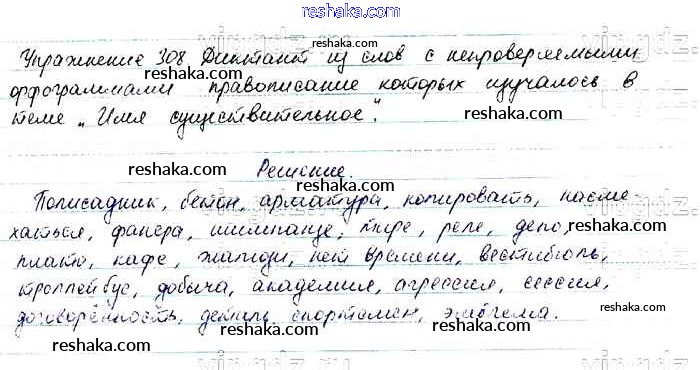 reshaka.com
Упражнение 308 Диктант из слов с непроверяемыми
орфограммами правописание которых изучалось в
теме „Имя существительное".
reshaka.com reshaka.com
reshaka.com Решение. reshaka.com
Полисадник, бетон, арматура, копировать, насме-
хаться, фанера, шимпанзе, пюре, реле, депо,
плато, кафе, жалюзи, нет времени, вестибюль,
троллейбус, добыча, академия, агрессия, сессия,
договорённость, деталь, спортсмен, эмблема.
reshaka.com reshaka.com
reshaka.com reshaka.com
reshaka.com reshaka.com
reshaka.com reshaka.com